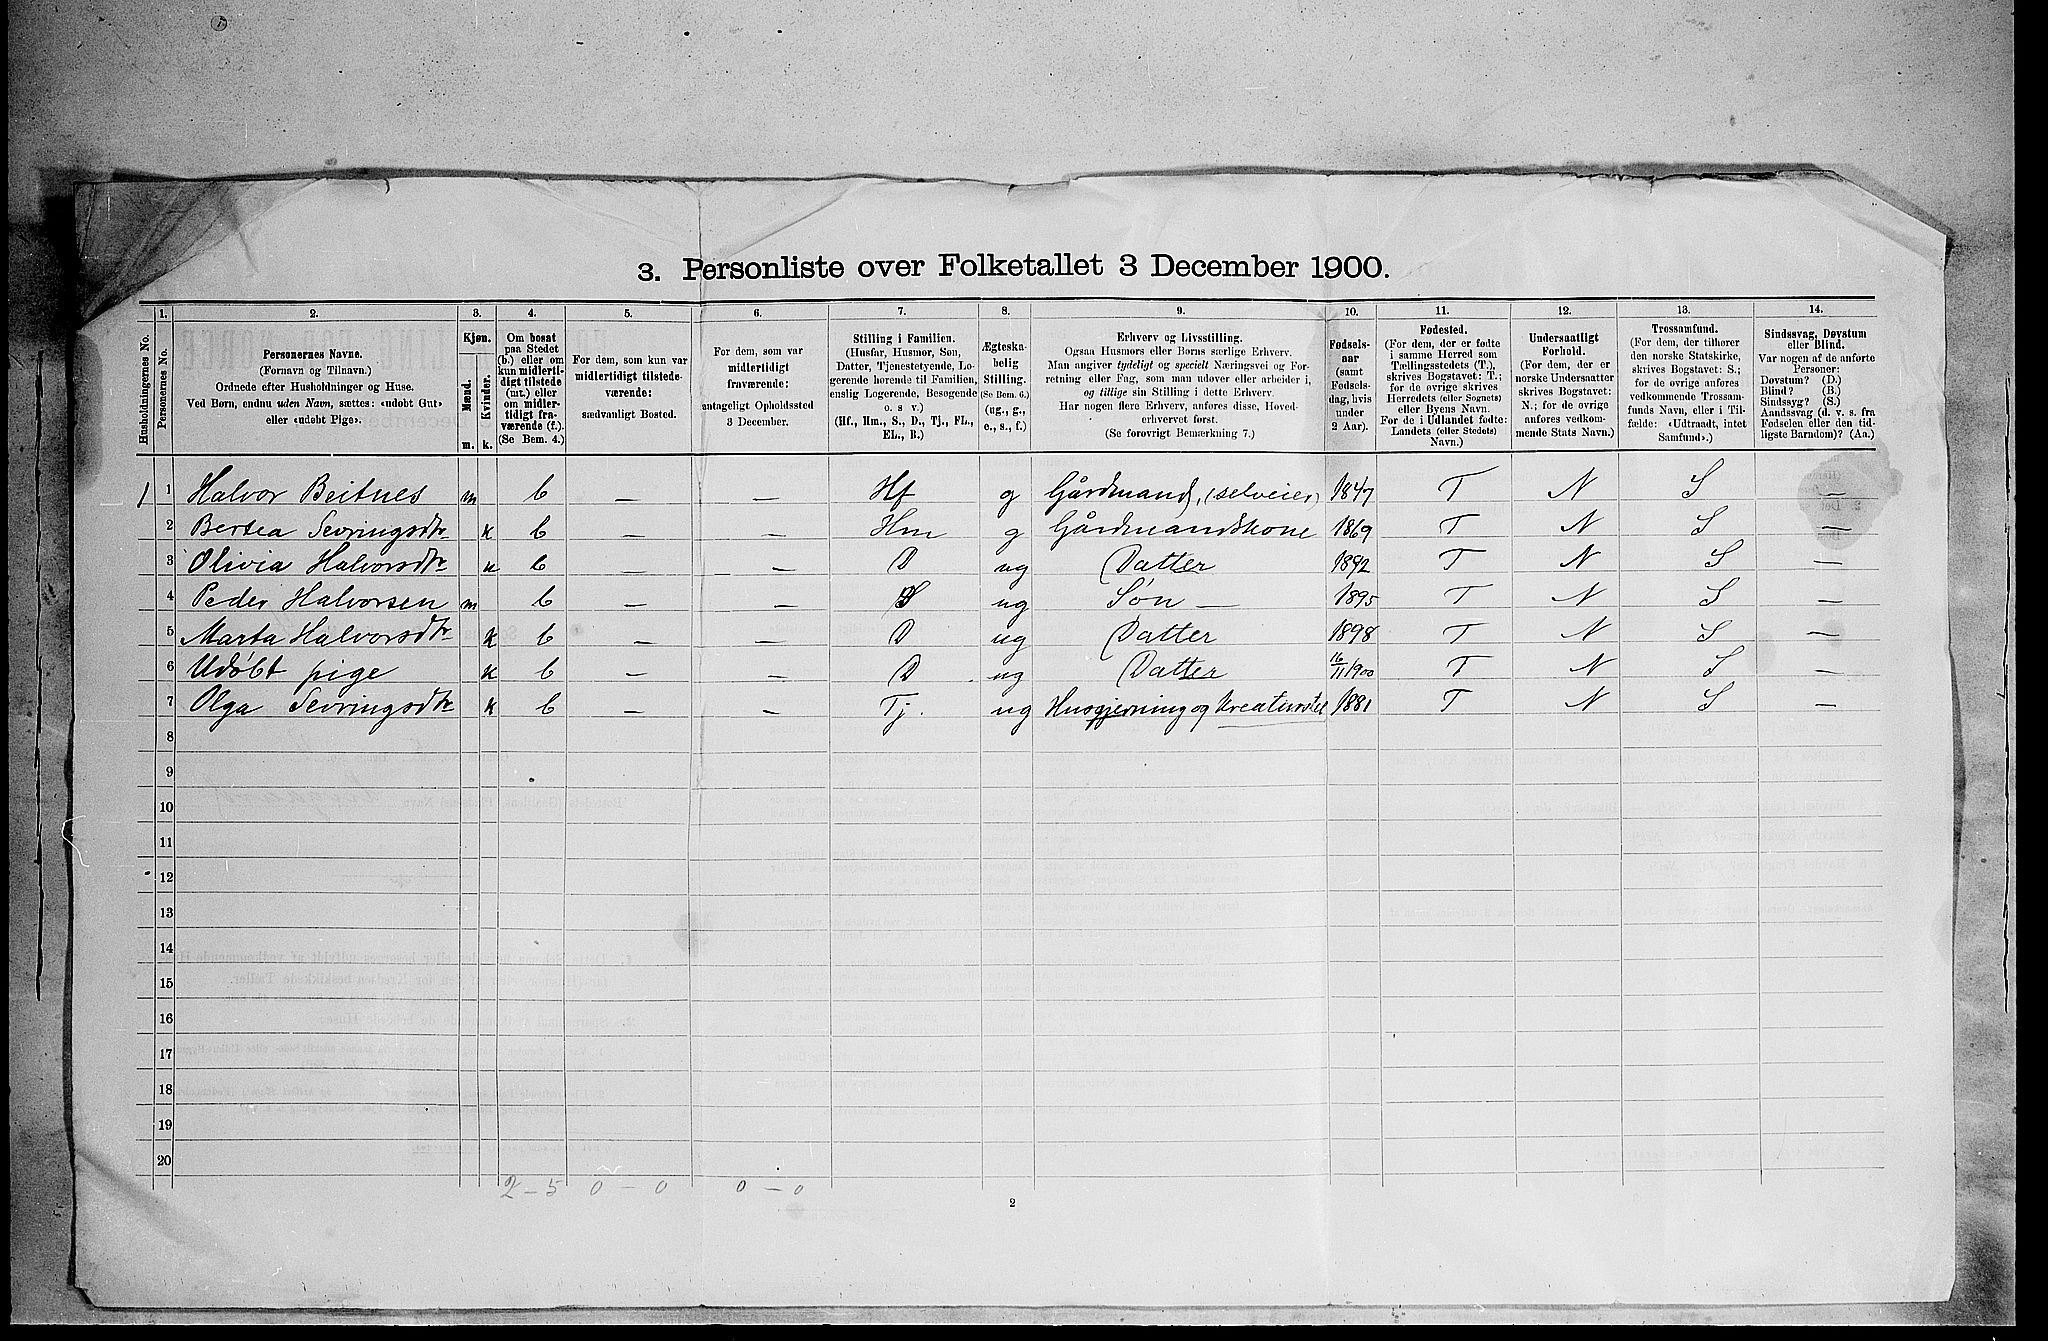 3. Personliste over Folketallet 3 December 1900.
1. 2. 3. 4. 5. 6. 7. 8. 9. 10. 11. 12. 13. 14.
Husholdningernes No.
Personernes No.
Personernes Navne.
(Fornavn og Tilnavn.)
Ordnede efter Husholdninger og Huse.
Ved Børn, endnu uden Navn, sættes: «udøbt Gut»
eller «udøbt Pige».
Kjøn.
Mænd.
Kvinder.
m. k.
Om bosat
paa Stedet
(b.) eller om
kun midlerti-
digt tilstede
(mt.) eller
om midler-
tidigt fra-
værende (f.).
(Se Bem. 4.)
For dem, som kun var
midlertidigt tilstede-
værende:
sædvanligt Bosted.
For dem, som var
midlertidigt
fraværende:
antageligt Opholdssted
3 December.
Stilling i Familien.
(Husfar, Husmor, Søn,
Datter, Tjenestetyende, Lo-
gerende hørende til Familien,
enslig Logerende, Besøgende
o. s. v.)
(Hf., Hm., S., D., Tj., FL.,
EL., B.)
Ægteska-
belig
Stilling.
(Se Bem. 6.)
(ug., g.,
e., s., f.)
Erhverv og Livsstilling.
Ogsaa Husmors eller Børns særlige Erhverv.
Man angiver tydeligt og specielt Næringsvei og For-
retning eller Fag, som man udøver eller arbeider i,
og tillige sin Stilling i dette Erhverv.
Har nogen flere Erhverv, anføres disse, Hoved-
erhvervet først.
(Se forøvrigt Bemærkning 7.)
Fødsels-
aar
(samt
Fødsels-
dag, hvis
under
2 Aar).
Fødested.
(For dem, der er fødte
i samme Herred som
Tællingsstedets (T.),
skrives Bogstavet: T.;
for de øvrige skrives
Herredets (eller Sognets)
eller Byens Navn.
For de i Udlandet fødte:
Landets (eller Stedets)
Navn.)
Undersaatligt
Forhold.
(For dem, der er
norske Undersaatter
skrives Bogstavet:
N.; for de øvrige
anføres vedkom-
mende Stats Navn.)
Trossamfund.
(For dem, der tilhører
den norske Statskirke,
skrives Bogstavet: S.;
for de øvrige anføres
vedkommende Trossam-
funds Navn, eller i Til-
fælde: «Udtraadt, intet
Samfund».)
Sindssvag, Døvstum
eller Blind.
Var nogen af de anførte
Personer:
Døvstum? (D.)
Blind? (B.)
Sindssyg? (S.)
Aandssvag (d. v. s. fra
Fødselen eller den tid-
ligste Barndom)? (Aa.)
1 1 Halvor Beitnes m b — — Hf g Gårdmand, (selveier) 1847 T N S —
2 Bertea Sevringsdtr k b — — Hm g Gårdmandskone 1869 T N S —
3 Olivia Halvorsdtr k b — — D ug Datter 1892 T N S —
4 Peder Halvorsen m b — — S ug Søn — 1895 T N S —
5 Marta Halvorsdtr k b — — D ug Datter 1898 T N S —
6 Udøbt pige k b — — D ug Datter 16/11 1900 T N S —
7 Olga Sevringsdtr k b — — Tj. ug Husgjerning og Kreaturstel 1881 T N S —
8
9
10
11
12
13
14
15
16
17
18
19
20
2 – 5 0 – 0 0 – 0
2